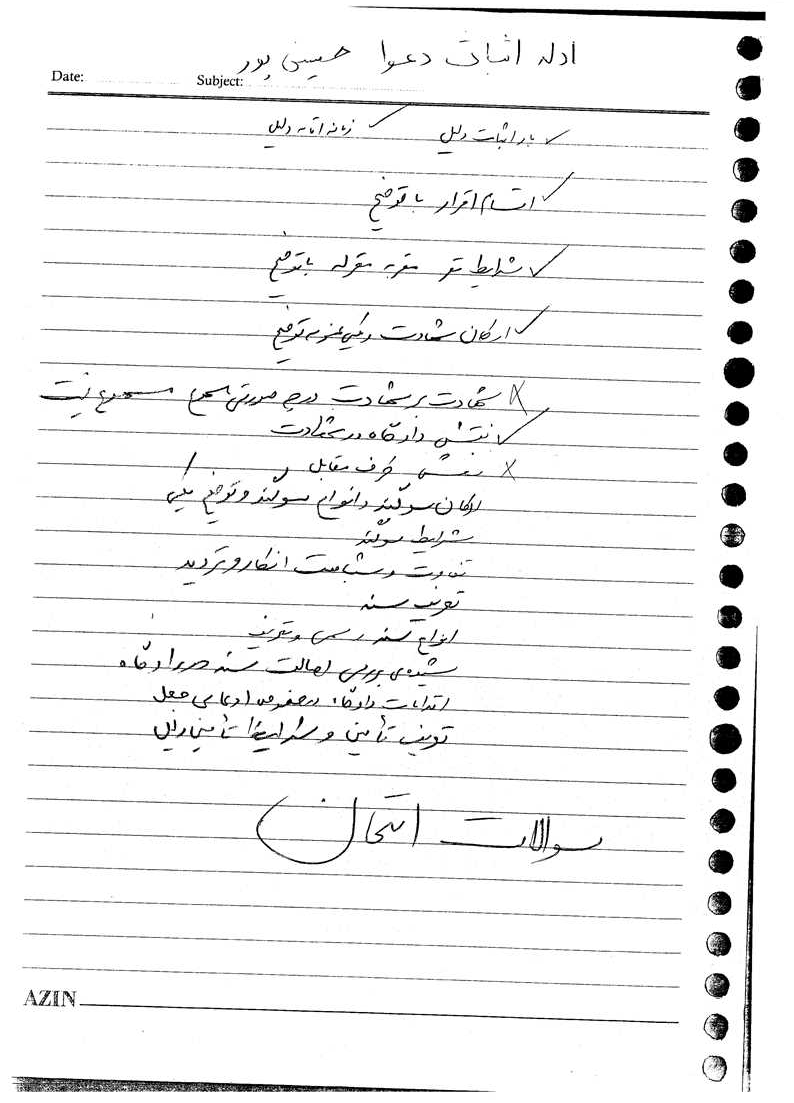 ادله اثبات دعوا حسینی پور
Date: Subject:
بار اثبات دلیل زمان اقامه دلیل
اقسام اقرار با توضیح
شرایط مقر مقربه مقرله باتوضیح
ارکان شهادت و توضیح
شهادت بر شهادت در چه صورتی مسموع نیست
نقش دادگاه در شهادت
نقش طرف مقابل
ارکان سوگند و انواع سوگند و توضیح
شرایط سوگند
تفاوت و شباهت انکار و تردید
تعریف سند
انواع سند رسمی و تعریف
شیوه‌ی بررسی اصالت سند در دادگاه
اقدامات دادگاه درخصوص ادعای جعل
تعریف تأمین و شرایط تأمین دلیل
سوالات امتحان
AZIN